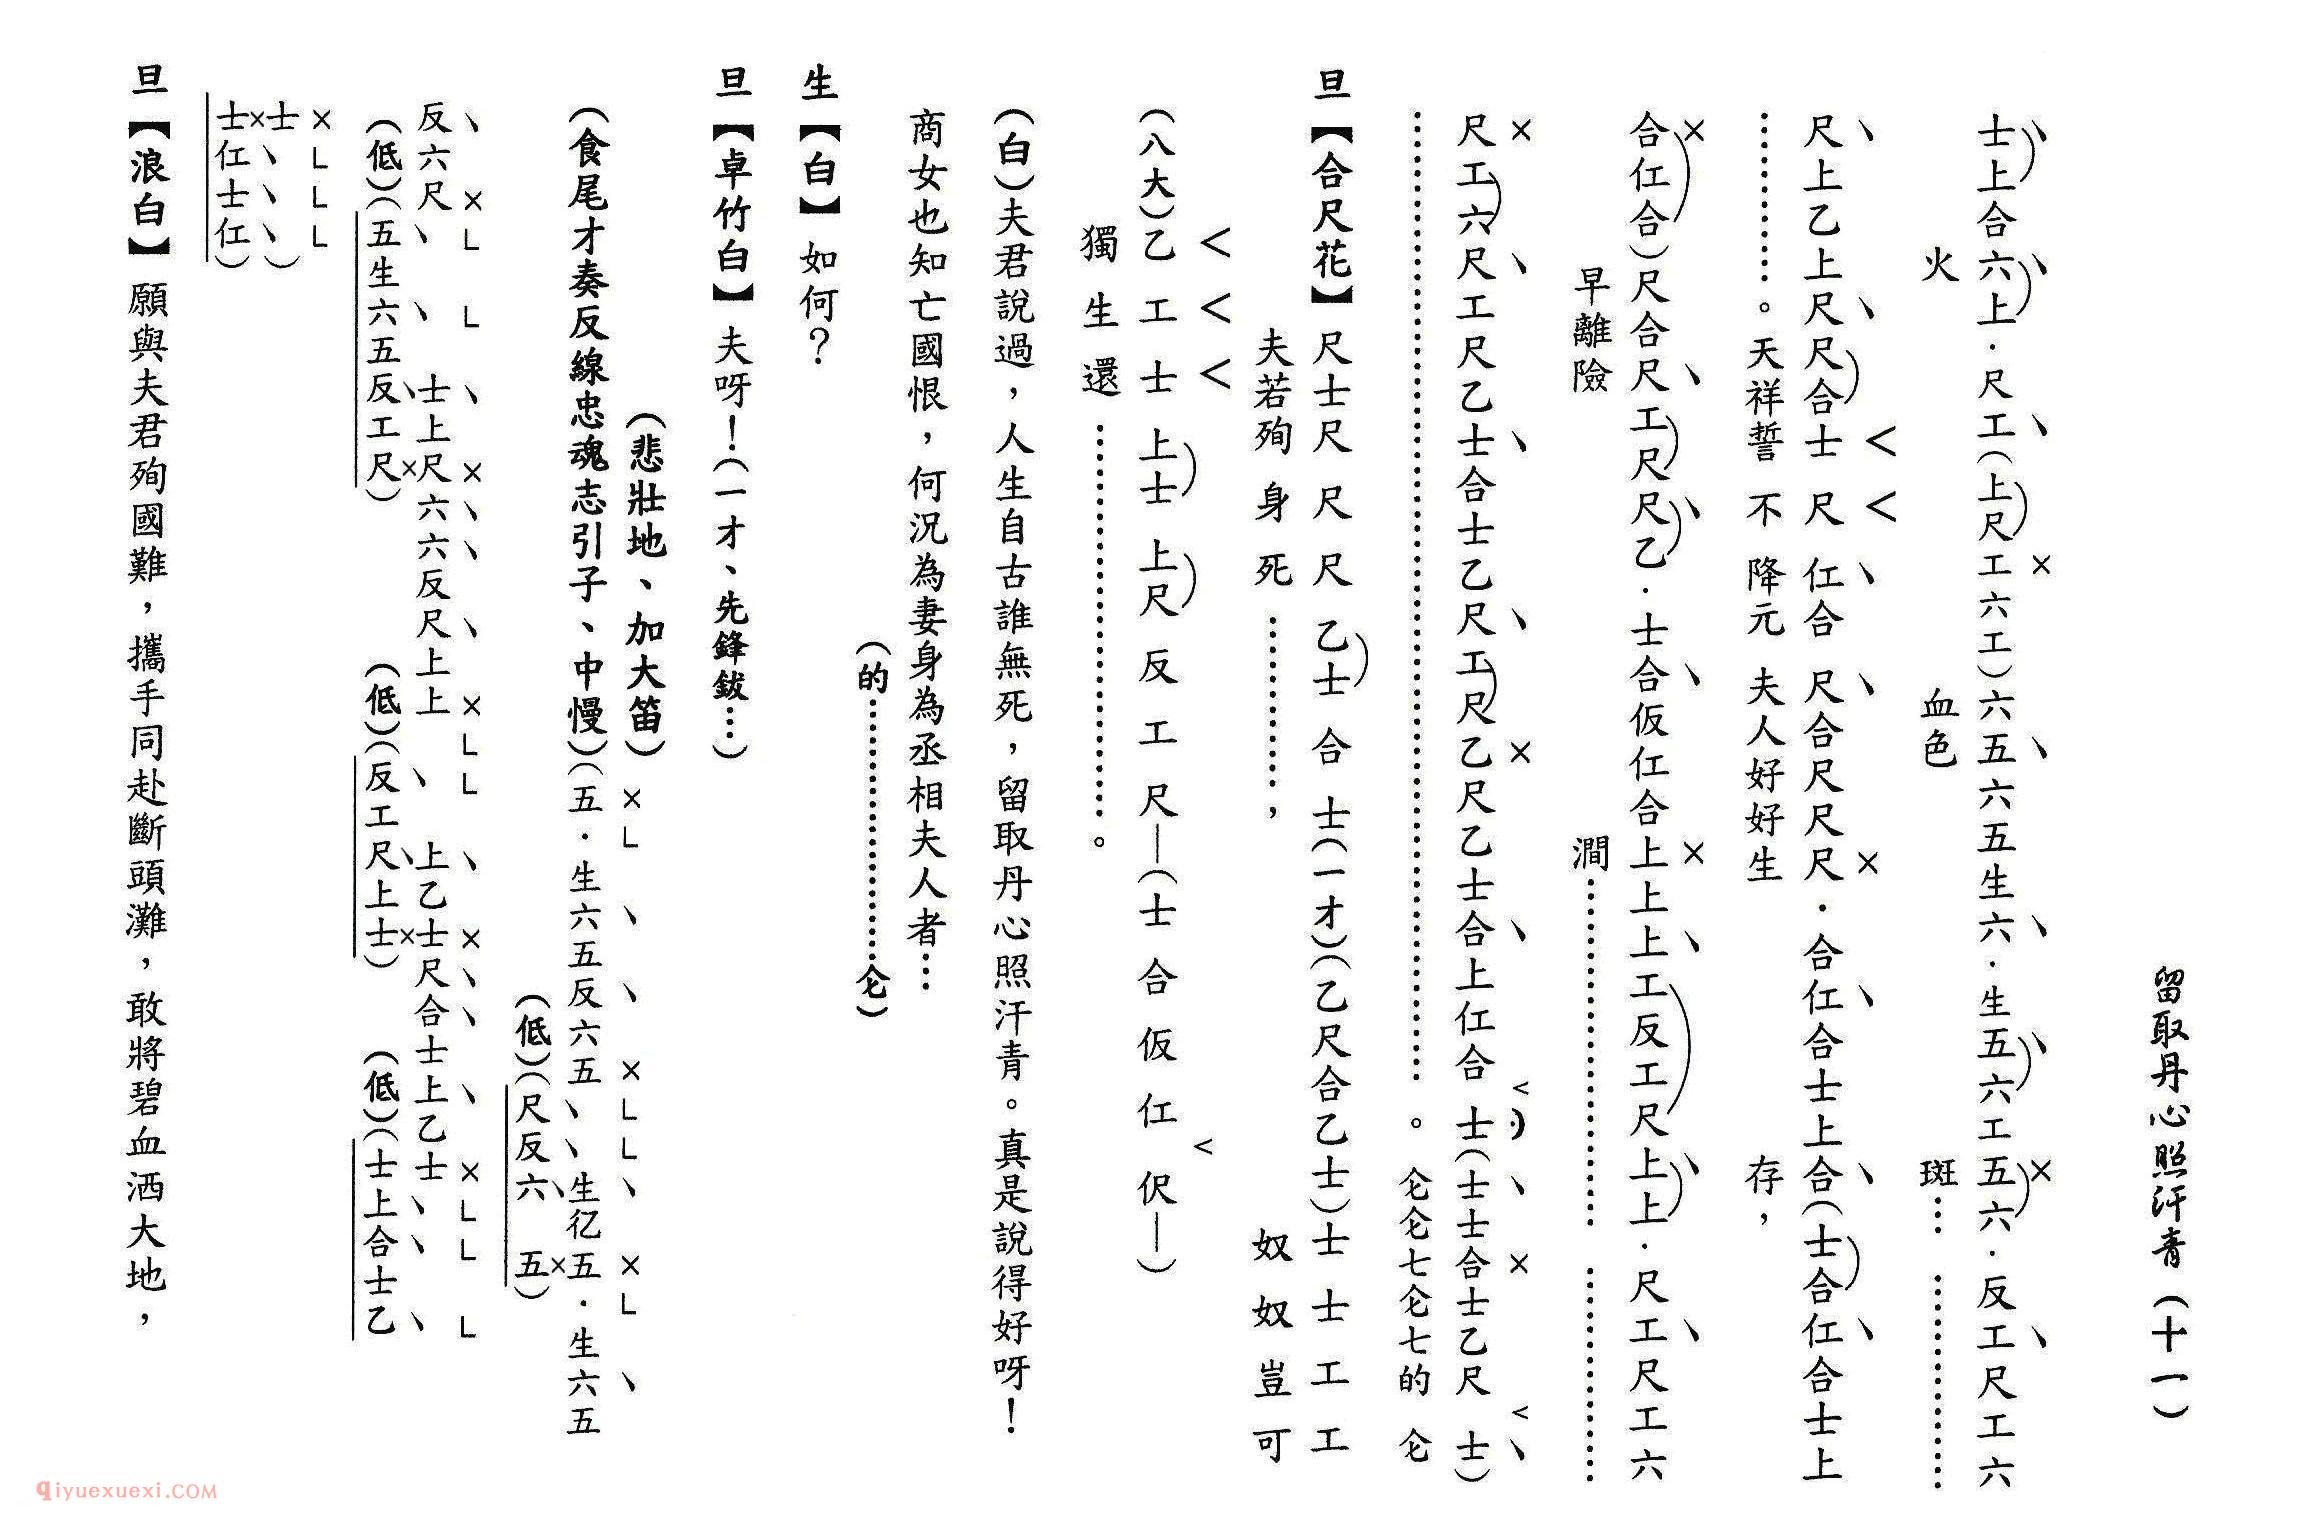 留取丹心照汗青（十一）
士上合六上．尺工（上尺工六工）六五六五生六．生五六工五六．反工尺工六
火　血色　斑…………
尺上乙上尺尺合士尺仁合尺合尺尺尺．合仁合士上合（士合仁合士上
…………。天祥誓不降元夫人好好生存，
合仁合）尺合尺工尺尺乙．士合仮仁合上上上工反工尺上上．尺工尺工六
早離險　澗…………………………
尺工六尺工尺乙士合士乙尺工尺乙尺乙士合上仁合士（士士合士乙尺士）
…………………………。仑仑七仑七的仑
旦【合尺花】尺士尺尺尺乙士合士（一才）（乙尺合乙士）士士工工
夫若殉身死…………，奴奴豈可
（八大）乙工士上士上尺反工尺—（士合仮仁伬—）
獨生還…………………………。
（白）夫君說過，人生自古誰無死，留取丹心照汗青。真是說得好呀！
商女也知亡國恨，何況為妻身為丞相夫人者…
（的…………………仑）
生【白】如何？
旦【卓竹白】夫呀！（一才、先鋒鈸……）
（悲壯地、加大笛）
（食尾才奏反線忠魂志引子、中慢）（五．生六五反六五、、生亿五．生六五
（低）（尺反六五）
反六尺、、士上尺六六反尺上上、上乙士尺合士上乙士、、、
（低）（五生六五反工尺）（低）（反工尺上士）（低）（士上合士乙
士、、、）
士仁士仁）
旦【浪白】願與夫君殉國難，攜手同赴斷頭灘，敢將碧血洒大地，
qiyuexuexi.COM